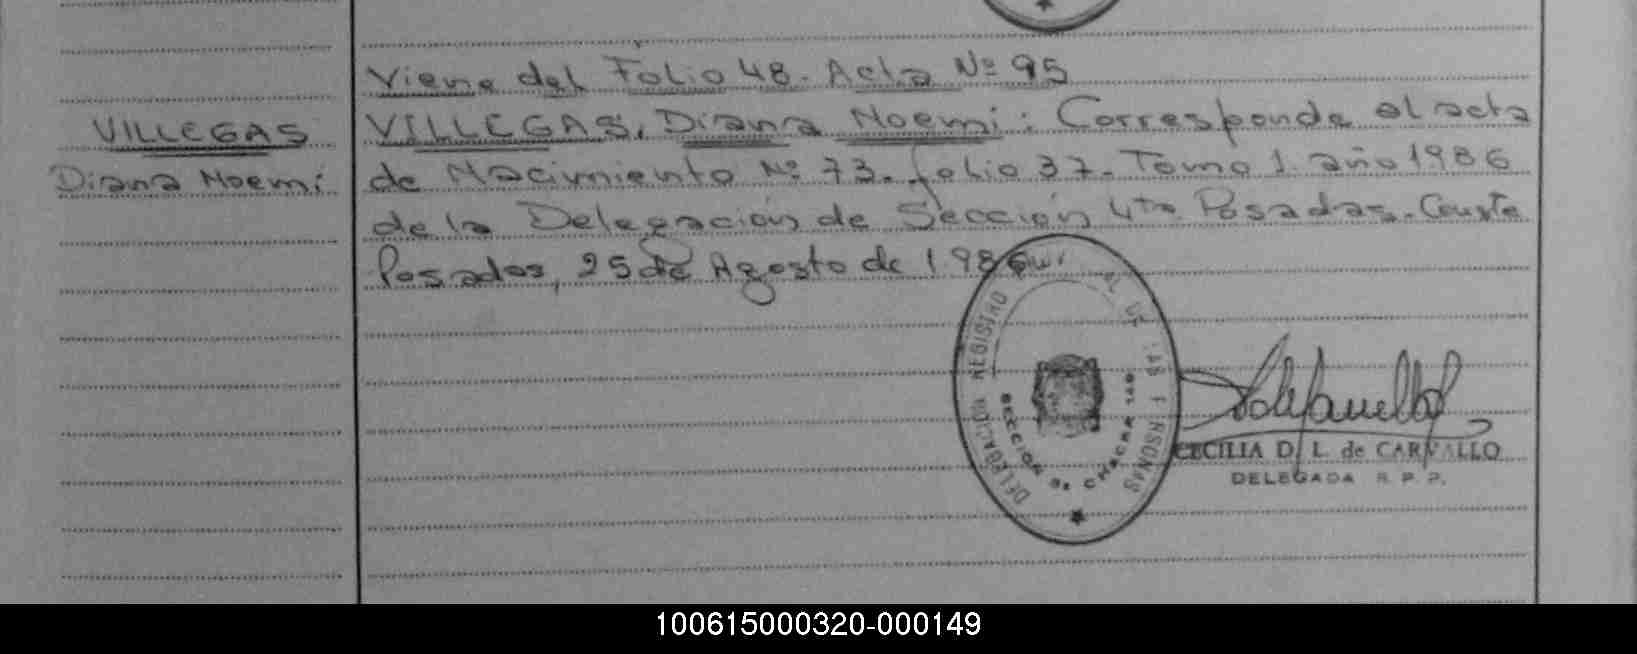 Viene del Folio 48. Acta Nº 95
VILLEGAS
Diana Noemí
VILLEGAS, Diana Noemi: Corresponde al acta
de Nacimiento Nº 73. folio 37. Tomo 1. año 1986
de la Delegación de Sección 4ta Posadas. Conste
Posadas, 25 de Agosto de 1986
DELEGACION REGISTRO DE LAS PERSONAS
SECCION DE CHACRA
CECILIA D. L. de CARVALLO
DELEGADA R. P. P.
100615000320-000149